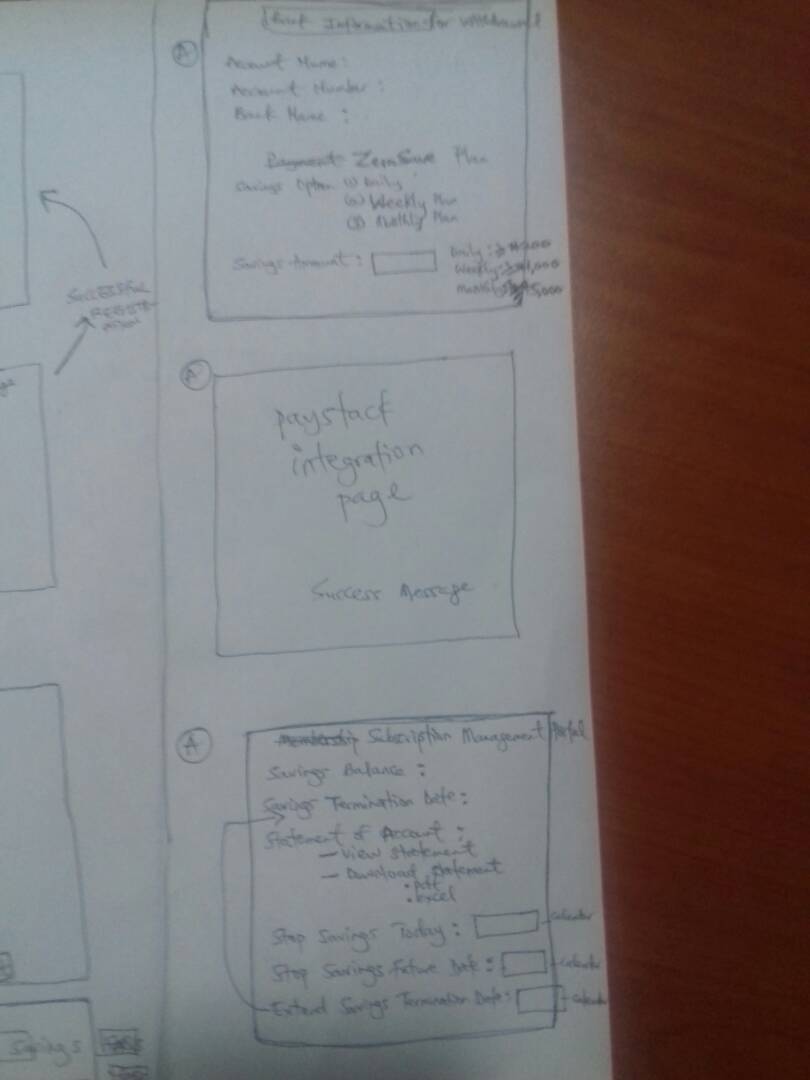 SUCCESSFUL
Information for withdrawal
A
Account Name :
Account Number :
Bank Name :
Payment ZeroSave Plan
Savings Option (1) Daily
(2) Weekly Plan
(3) Monthly Plan
Savings Amount :
Daily :
Weekly : ₦1,000
Monthly ₦5,000
A
paystack
integration
page
Success Message
A
Subscription Management Portal
Savings Balance :
Savings Termination Date :
Statement of Account :
- View Statement
- Download Statement
• pdf
• excel
Stop Savings Today : - calendar
Stop Savings Future Date : - calendar
Extend Savings Termination Date : - calendar
Savings